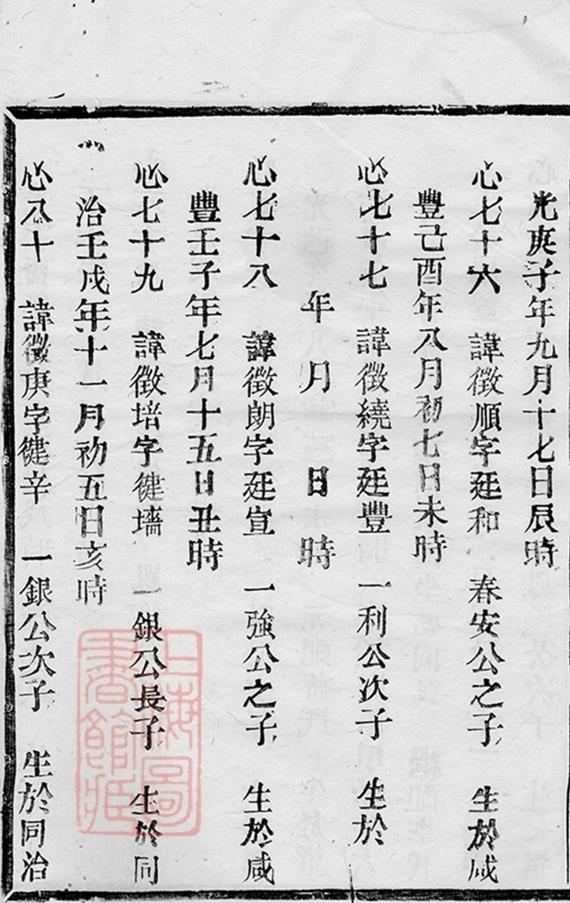 光庚子年九月十七日辰時
心七十六 諱徵順字廷和 春安公之子 生於咸
豐己酉年八月初七日未時
心七十七 諱徵繞字廷豐 一利公次子 生於
年 月 日 時
心七十八 諱徵朗字廷宣 一強公之子 生於咸
豐壬子年七月十五日丑時
心七十九 諱徵培字健墻 一銀公長子 生於同
治壬戌年十一月初五日亥時
心八十 諱徵庚字健辛 一銀公次子 生於同治
上海圖書館藏